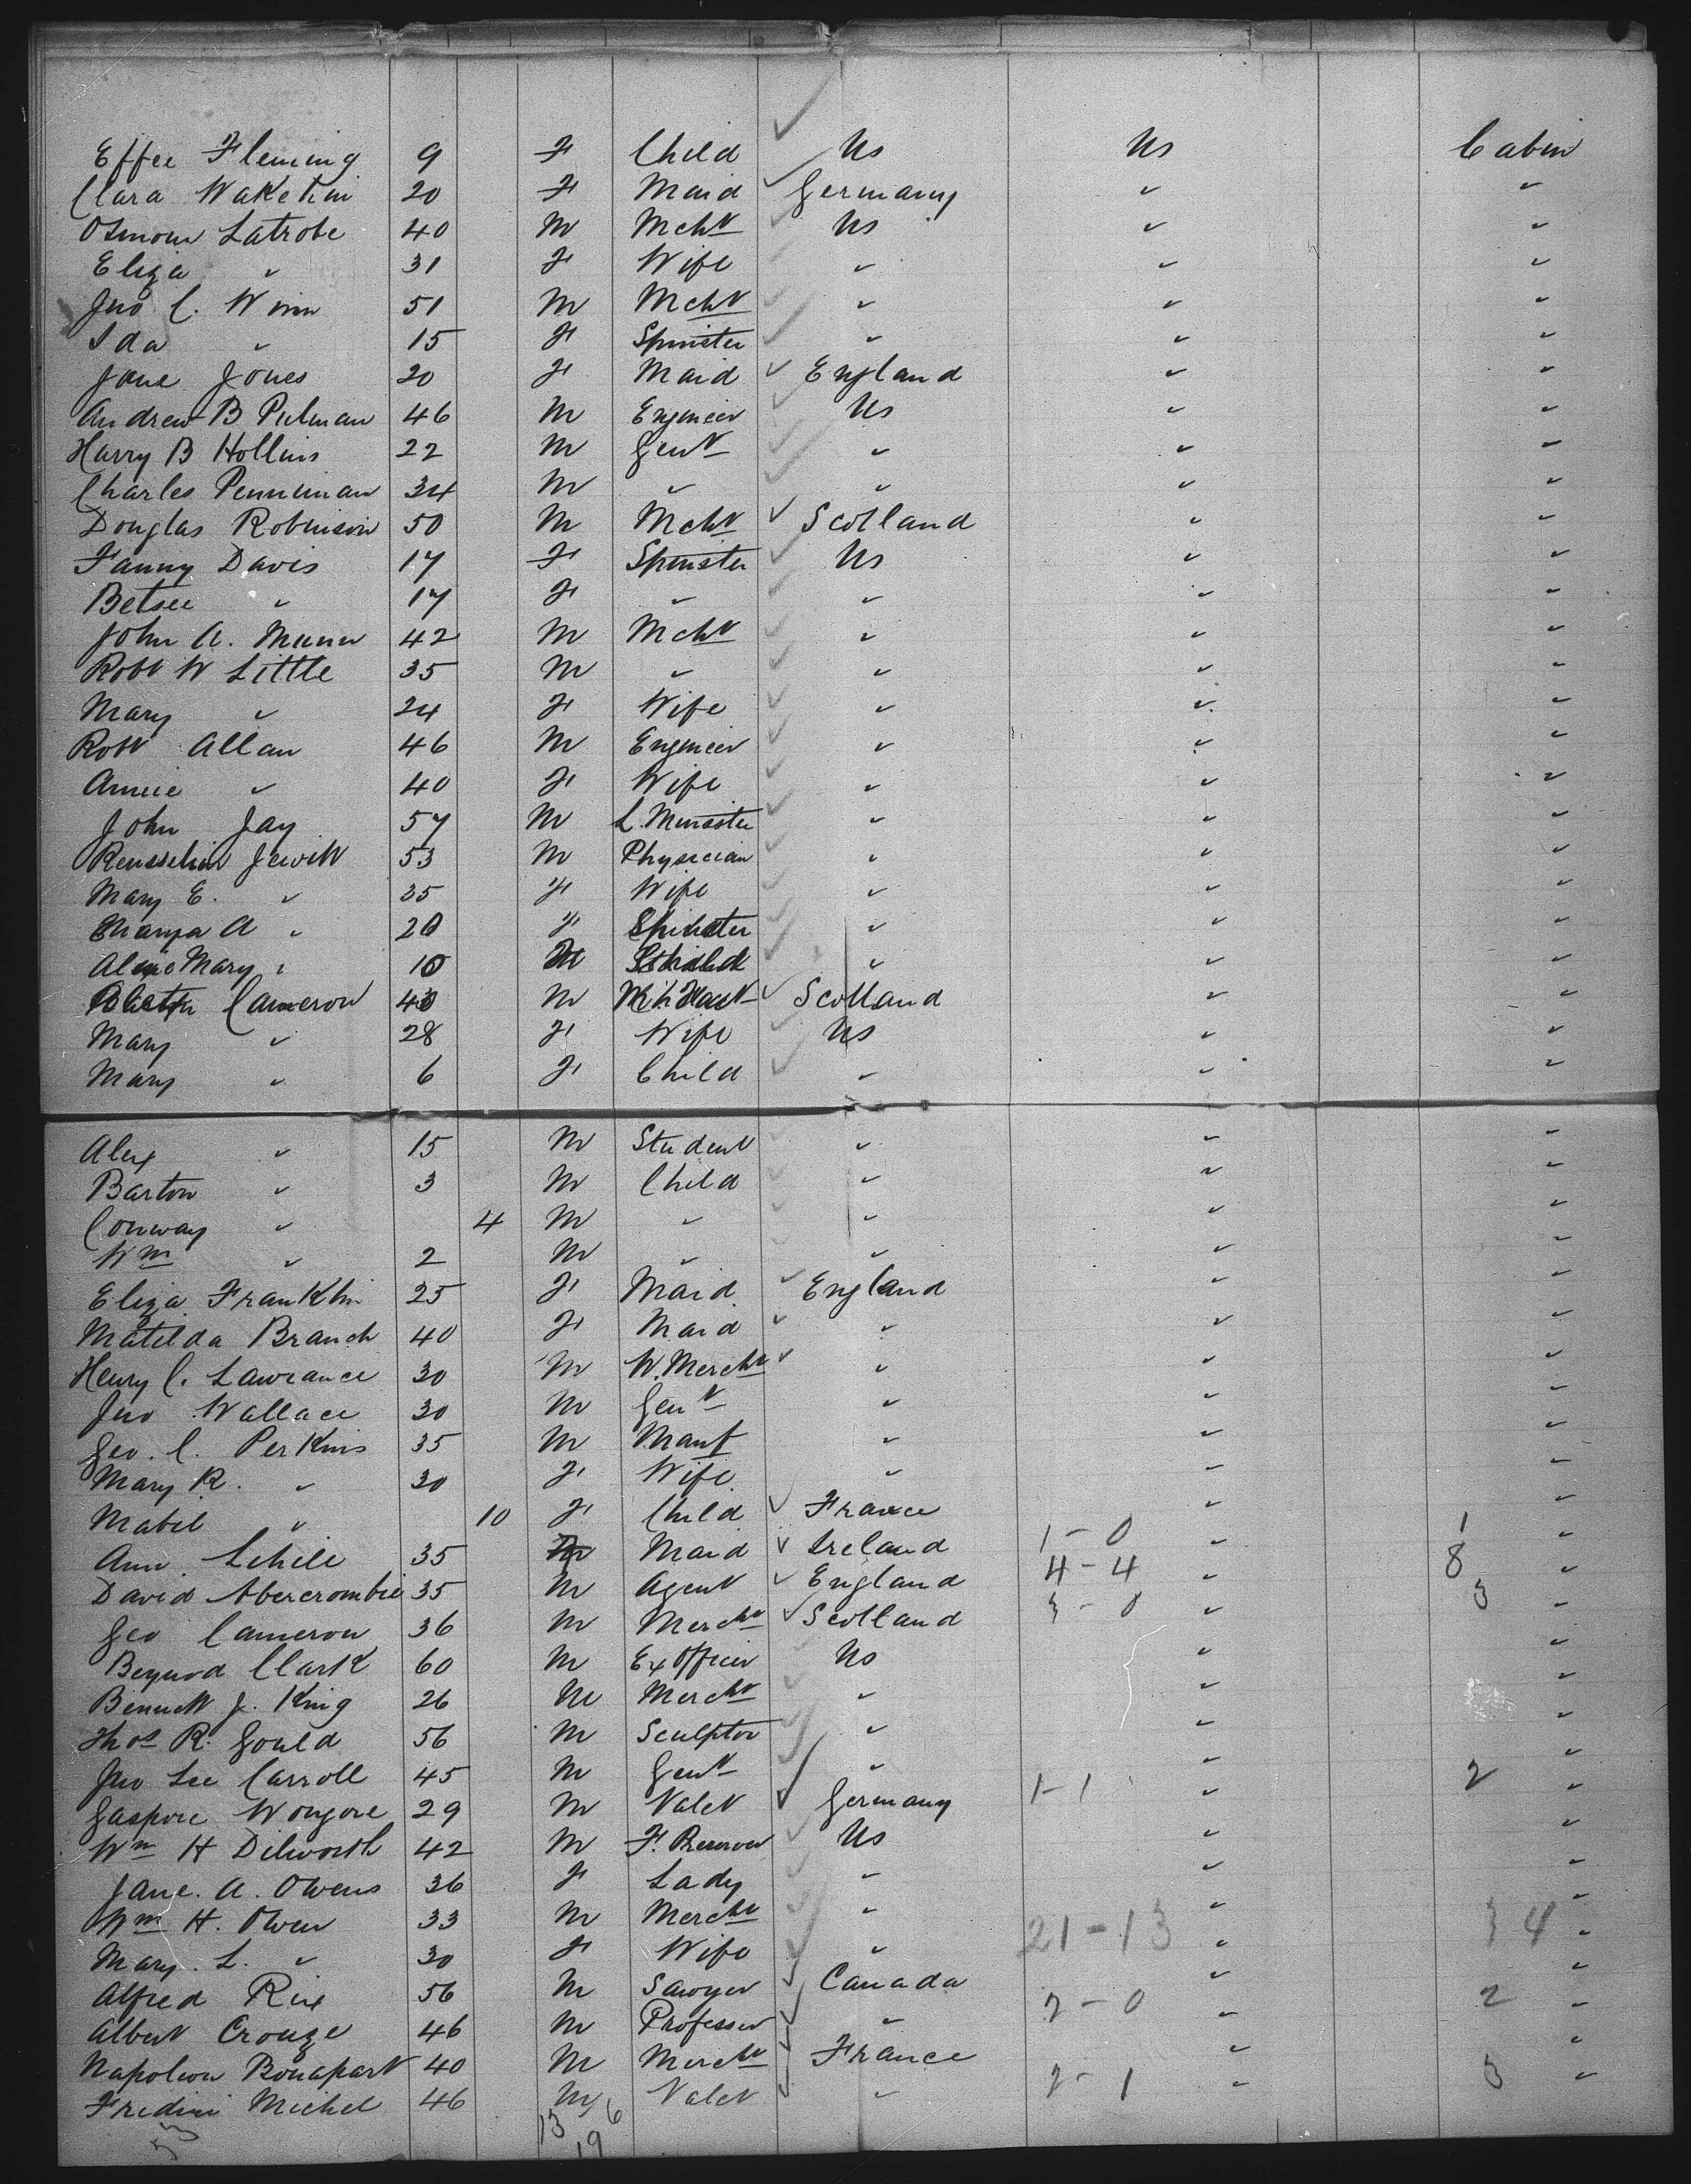 Effee Fleming 9 F Child Us Us Cabin
Clara Wake 20 F Maid Germany " "
Osmour Latrobe 40 M Mcht Us " "
Eliza " 31 F Wife " " "
Jno C. Winn 51 M Mcht " " "
Ida " 15 F Spinster " " "
Jane Jones 20 F Maid England " "
Andrew B 46 M Engineer Us " "
Harry B Hollins 22 M Gent " " "
Charles Penniman 34 M " " " "
Douglas Robinson 50 M Mcht Scotland " "
Fanny Davis 17 F Spinster Us " "
Betsee " 17 F " " " "
John A. Munn 42 M Mcht " " "
Robt W Little 35 M " " " "
Mary " 24 F Wife " " "
Robt Allan 46 M Engineer " " "
Annie " 40 F Wife " " "
John Jay 57 M L. Minister " " "
Jewitt 53 M Physician " " "
Mary E. " 35 F Wife " " "
A " 20 F Spinster " " "
Mary " 10 " " "
Cameron M Scotland " "
Mary " 28 F Wife Us " "
Mary " 6 F Child " " "
Alex " 15 M Student " " "
Barton " 3 M Child " " "
Conway " 4 M " " " "
Wm " 2 M " " " "
Eliza Franklin 25 F Maid England " "
Matilda Branch 40 F Maid " " "
Henry C. Lawrance 30 M W. Mercht " " "
Jno Wallace 30 M Gent " " "
Geo. C. Perkins 35 M Manf " " "
Mary R. " 30 F Wife " " "
Mabel " 10 F Child France " "
Ann 35 Maid Ireland 1-0 " 1 "
David Abercrombie 35 M Agent England 4-4 " 8 "
Geo Cameron 36 M Mercht Scotland 3-0 " 3 "
Clark 60 M Ex Officer Us " "
Bennett J. King 26 M Mercht " " "
Thos R. Gould 56 M Sculptor " " "
Jno Lee Carroll 45 M Gent " " "
Gaspore Wongore 29 M Valet Germany 1-1 " 2 "
Wm H Dilworth 42 M Us " "
Jane. A. Owens 36 F Lady " " "
Wm H. Owen 33 M Mercht " " "
Mary. L. " 30 F Wife " 21-13 " 34 "
Alfred Rix 56 M Sawyer Canada " "
Albert Crouze 46 M Professer " 2-0 " 2 "
Napoleon Bonapart 40 M Mercht France " "
Michel 46 M Valet " 2-1 " 3 "
13 6
19
53